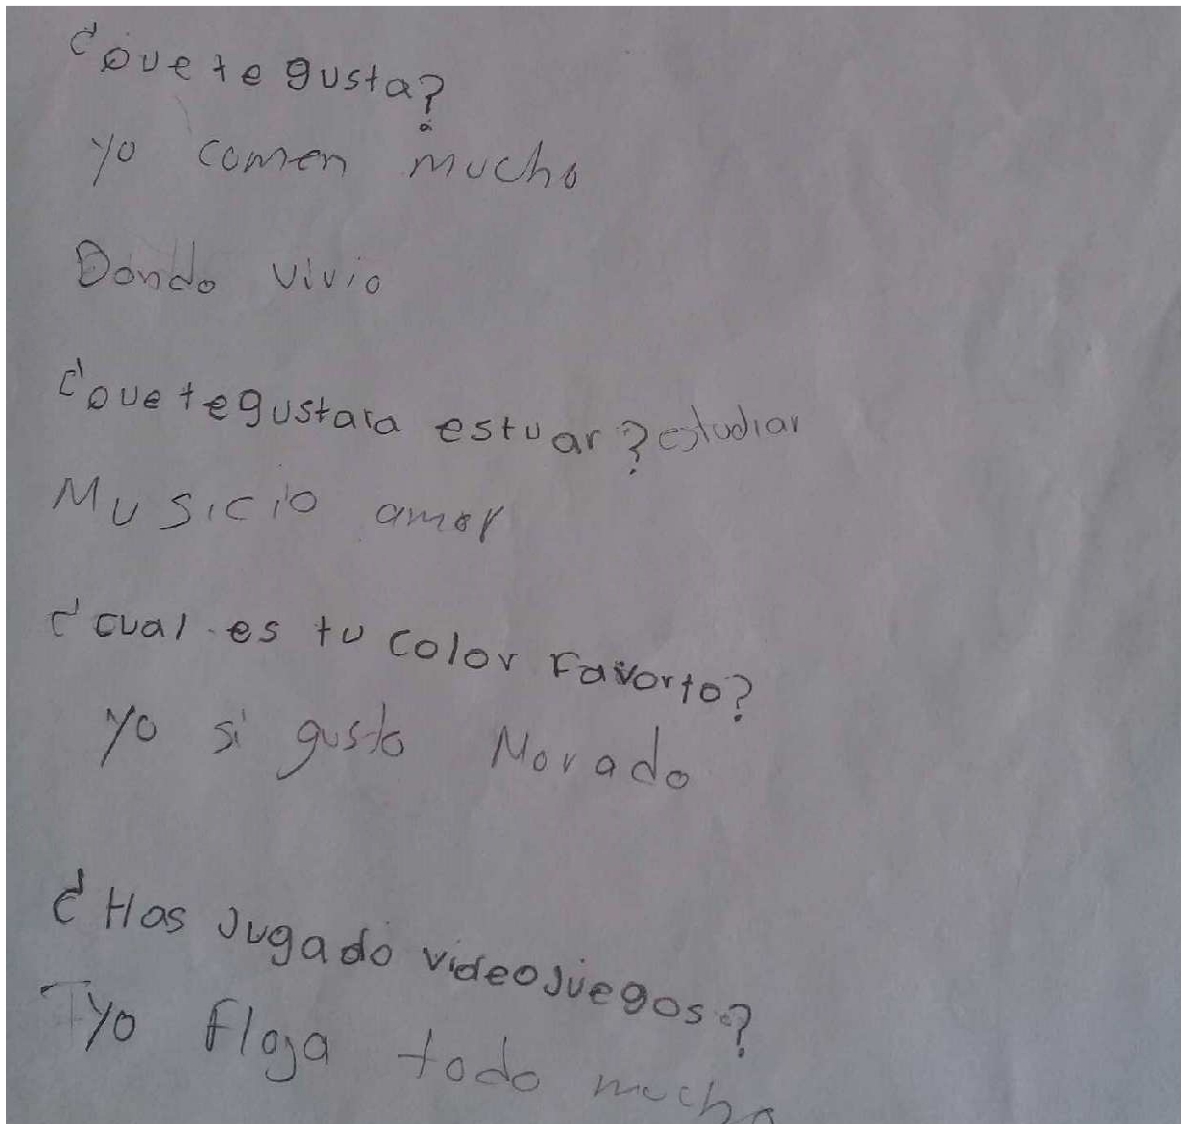 ¿Que te gusta?
yo comen mucho
Dondo vivio
¿que te gustaia estuar? estudiar
Musicio amor
¿cual es tu color Favorto?
yo si gusto Morado
¿Has Jugado videojuegos?
yo floja todo mucho